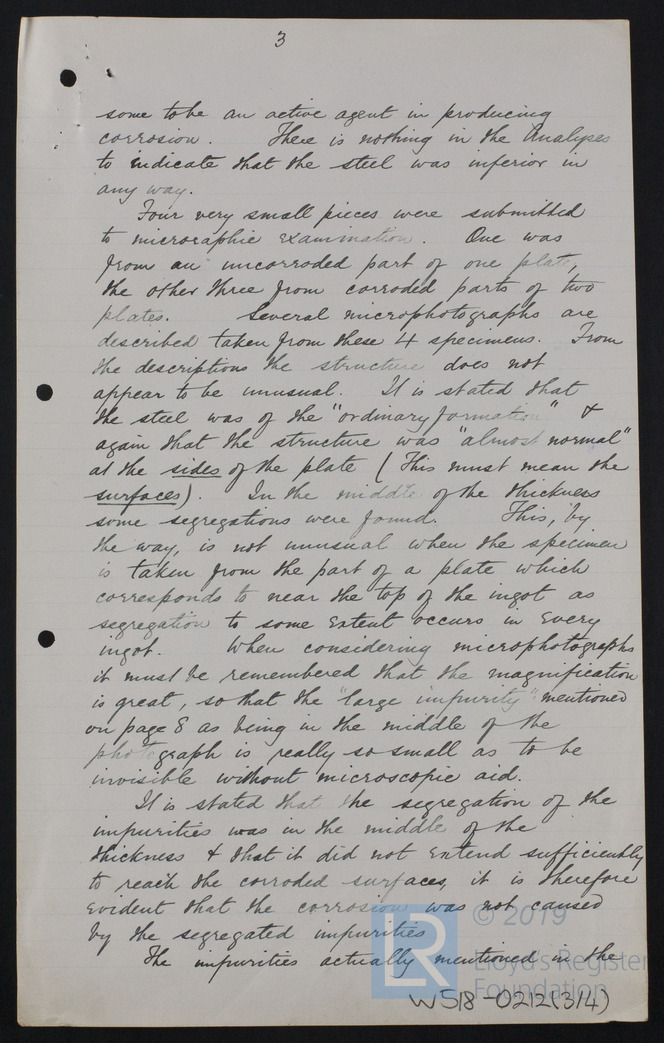 3
some to be an active agent in producing
corrosion. There is nothing in the Analyses
to indicate that the steel was inferior in
any way.
Four very small pieces were submitted
to micrographic examination. One was
from an uncorroded part of one plate,
the other three from corroded parts of two
plates. Several microphotographs are
described taken from these 4 specimens. From
the descriptions the structure does not
appear to be unusual. It is stated that
the steel was of the "ordinary formation" &
again that the structure was "almost normal"
at the sides of the plate (This must mean the
surfaces). In the middle of the thickness
some segregations were found. This, by
the way, is not unusual when the specimen
is taken from the part of a plate which
corresponds to near the top of the ingot as
segregation to some extent occurs in every
ingot. When considering microphotographs
it must be remembered that the magnification
is great, so that the "large impurity" mentioned
on page 8 as being in the middle of the
photograph is really so small as to be
invisible without microscopic aid.
It is stated that the segregation of the
impurities was in the middle of the
thickness & that it did not extend sufficiently
to reach the corroded surfaces, it is therefore
evident that the corrosion was not caused
by the segregated impurities
The impurities actually mentioned in the
© 2019
LR
Lloyd's Register
Foundation
W518-0212(3/4)